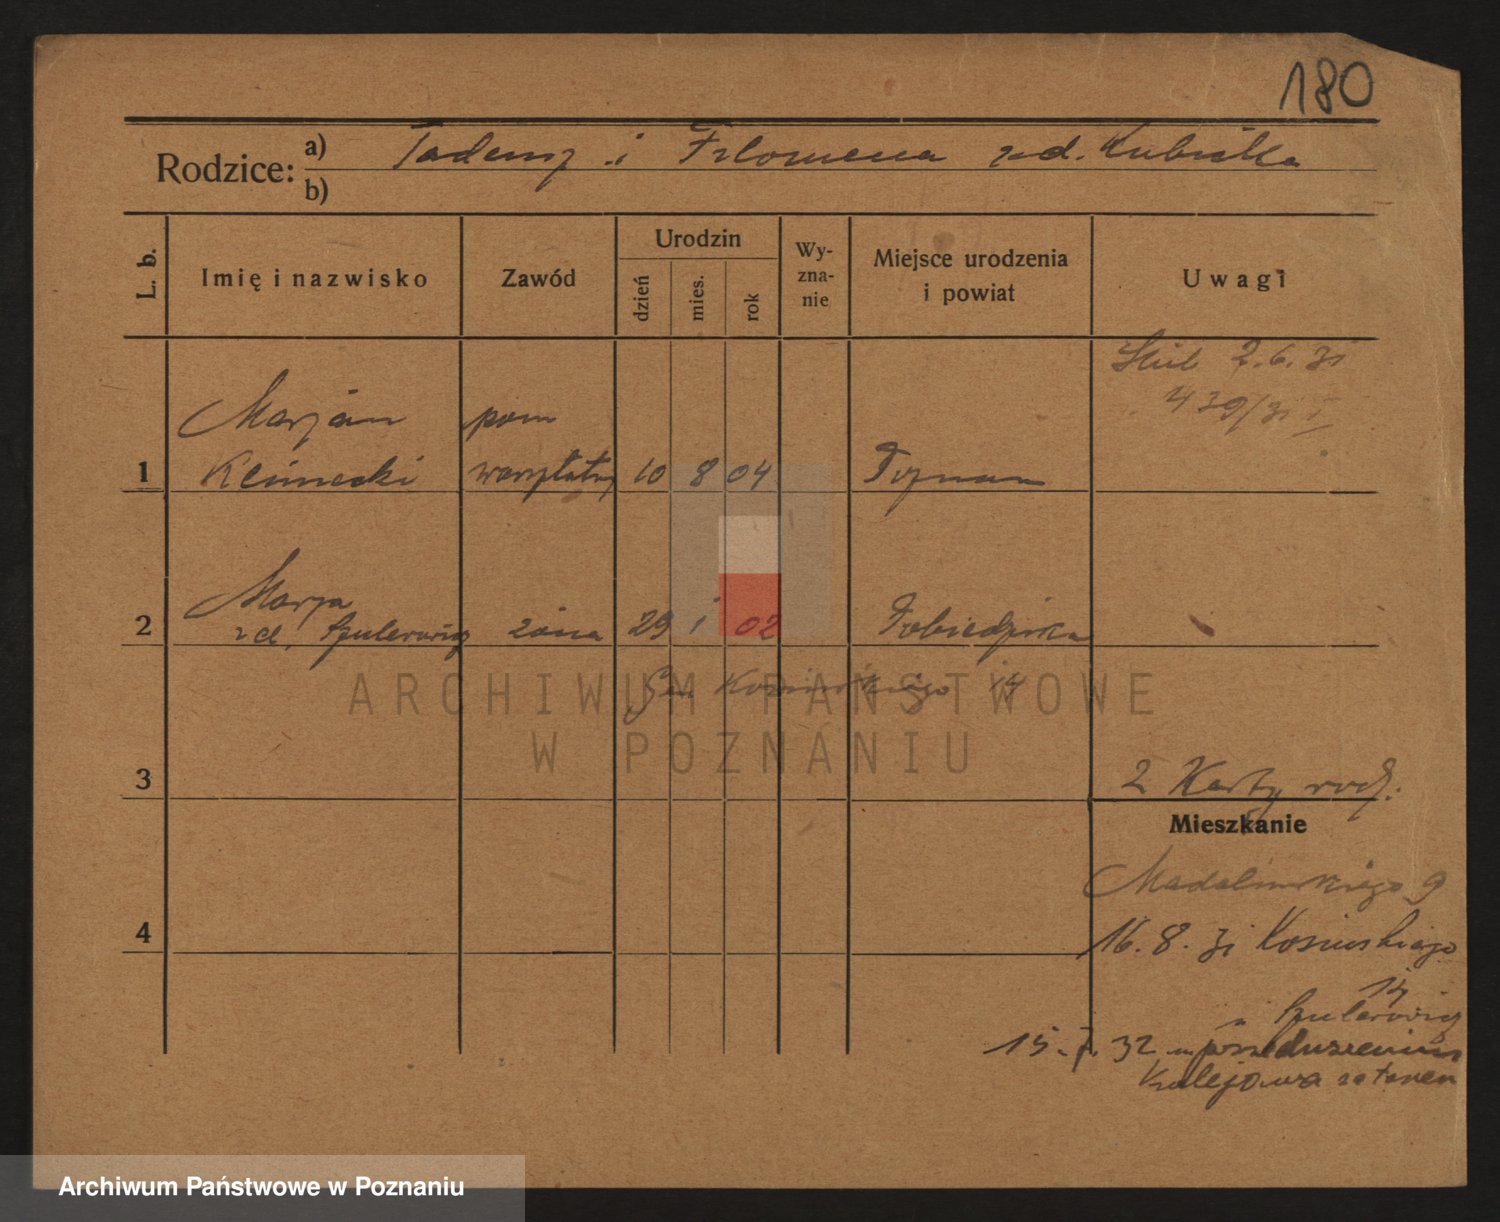 180
Rodzice: a) Tadeusz i Filomena zd. Kubiatka
b)
L. b.
Imię i nazwisko
Zawód
Urodzin
dzień
mies.
rok
Wy-
zna-
nie
Miejsce urodzenia
i powiat
Uwagi
Ślub 2.6.31
439/31 I
1
Marjan
Klimecki
pom
10 8 04
Poznan
2
Marja
zd. Szulerowicz
żona
29 1 02
Pobiedziska
Kosińskiego 14
3
2 Karty rodz.
Mieszkanie
Madalińskiego 9
4
16.8.31 Kosińskiego
14
u Szulerowicz
15.7.32
Kolejowa
ARCHIWUM PAŃSTWOWE
W POZNANIU
Archiwum Państwowe w Poznaniu